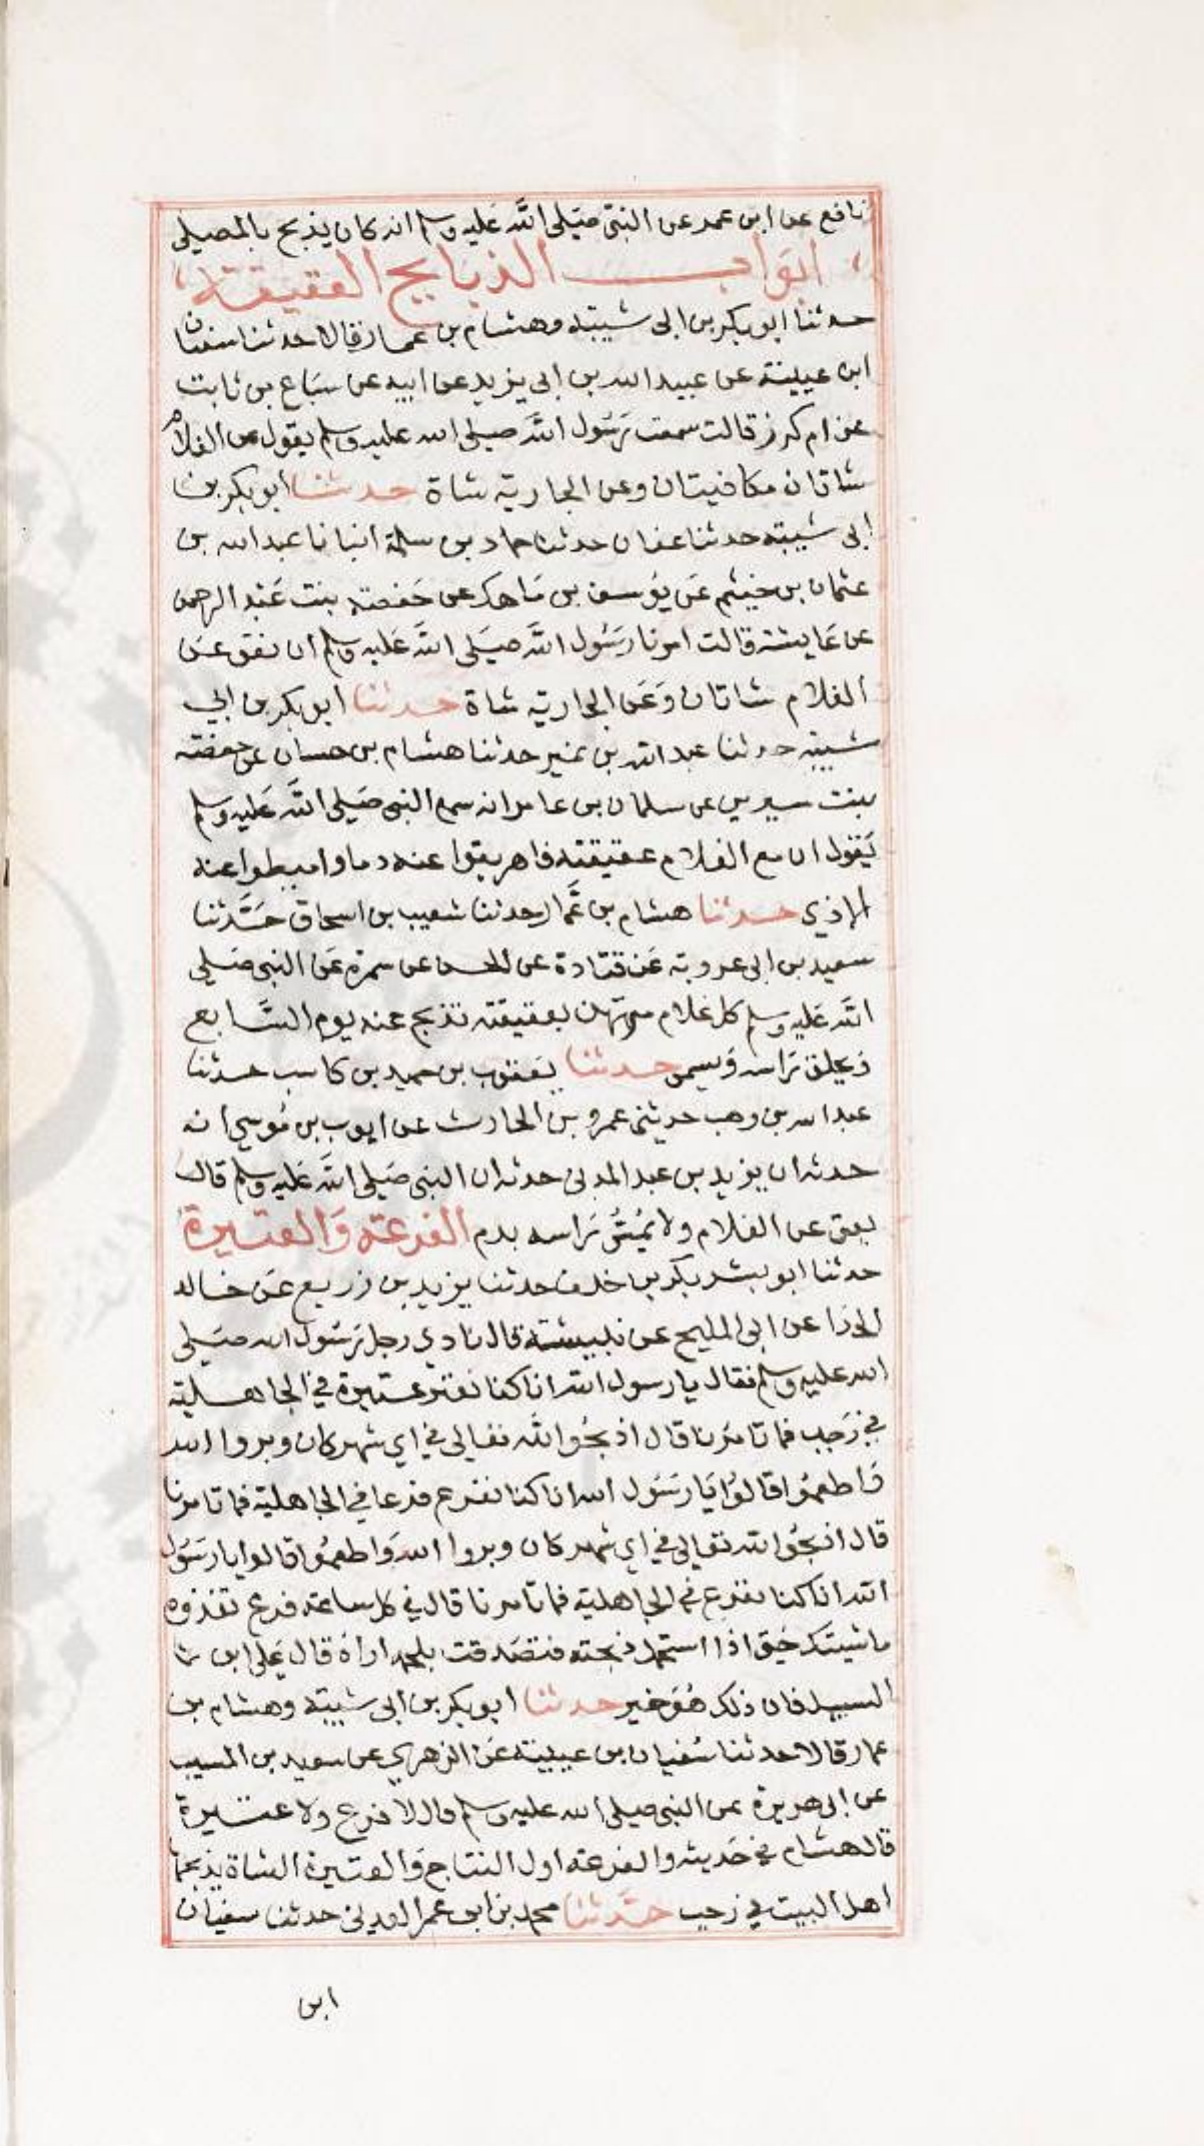 نافع عن ابن عمر عن النبي صَلى الله عَليه وسلم انه كان يذبح بالمصلى
ابواب الذبايح العقيقة
حدثنا ابو بكر بن ابى شيبة وهشام بن عمار قالا حدثنا سفيان
ابن عيينة عن عبيد الله بن ابى يزيد عن ابيه عن سباع بن ثابت
عن ام كرز قالت سمعت رَسُول الله صلى الله عليه وسلم يقول عن الغلام
شاتان مكافيتان وعن الجارية شاة حدثنا ابو بكر بن
ابى شيبة حدثنا عفان حدثنا حماد بن سلمة انبانا عبد الله بن
عثمان بن خيثم عَن يوسف بن مَاهك عن حَفصة بنت عَبد الرحمن
عن عَايشة قالت امرنا رَسُول الله صَلى الله عَليه وسلم ان نعق عَن
الغلام شاتان وَعَن الجارية شاة حدثنا ابو بكر بن ابي
شيبة حدثنا عبد الله بن نمير حدثنا هشام بن حسان عن حفصة
بنت سيرين عن سلمان بن عامر انه سمع النبي صَلى الله عَليه وسلم
يَقول ان مع الغلام عقيقته فاهريقوا عنه دما واميطوا عنه
الاذي حدثنا هشام بن عَمار حدثنا شعيب بن اسحاق حَدَّثنا
سعيد بن ابى عروبة عَن قتادة عن الحسن عن سمرة عَن النبي صَلى
الله عَليه وسلم كل غلام مرتهن بعقيقته تذبح عنه يوم السَّابع
وَيحلق رَاسه وَيسمى حدثنا يَعقوب بن حميد بن كاسب حدثنا
عبد الله بن وهب حدثنى عمرو بن الحارث عن ايوب بن مُوسي انه
حدثه ان يزيد بن عبد المدنى حدثه ان النبى صَلى الله عَليه وسلم قال
يعق عن الغلام ولا يُمَسُّ رَاسه بدم الفرعة وَالعتيرة
حدثنا ابو بشر بكر بن خلف حدثنا يزيد بن زريع عَن خالد
الحذا عن ابى المليح عن نبيشة قال نادي رجل رَسُول الله صَلى
الله عليه وسلم فقال يا رسول الله انا كنا نعتر عتيرة في الجاهلية
في رَجب فما تامُرنا قال اذبحُوا لله تعالى في اي شهر كان وبروا الله
وَاطعمُوا قالوُا يَا رَسُول الله انا كنا نفرع فرعا في الجاهلية فما تامرنا
قال اذبحُوا لله تعالى في اي شهر كان وبروا الله وَاطعمُوا قالوا يا رَسُول
الله انا كنا نفرع في الجاهلية فما تامرنا قال في كل ساعة فرع تغذوه
ماشيتك حَتى اذا استحمل ذبحته فتصَدقت بلحمه اراهُ قال عَلى ابن
السبيل فان ذلك هُوَ خير حدثنا ابو بكر بن ابى شيبة وهشام بن
عمار قالا حدثنا سُفيان بن عيينة عَن الزهري عن سعيد بن المسيب
عن ابى هريرة عن النبى صلى الله عليه وسلم قال لا فرع ولا عتيرة
قال هشام في حَديثه والفرعة اول النتاج وَالعتيرة الشاة يذبحها
اهل البيت في رجب حدَّثنا محمد بن ابى عمر العدنى حدثنا سفيان
ابن